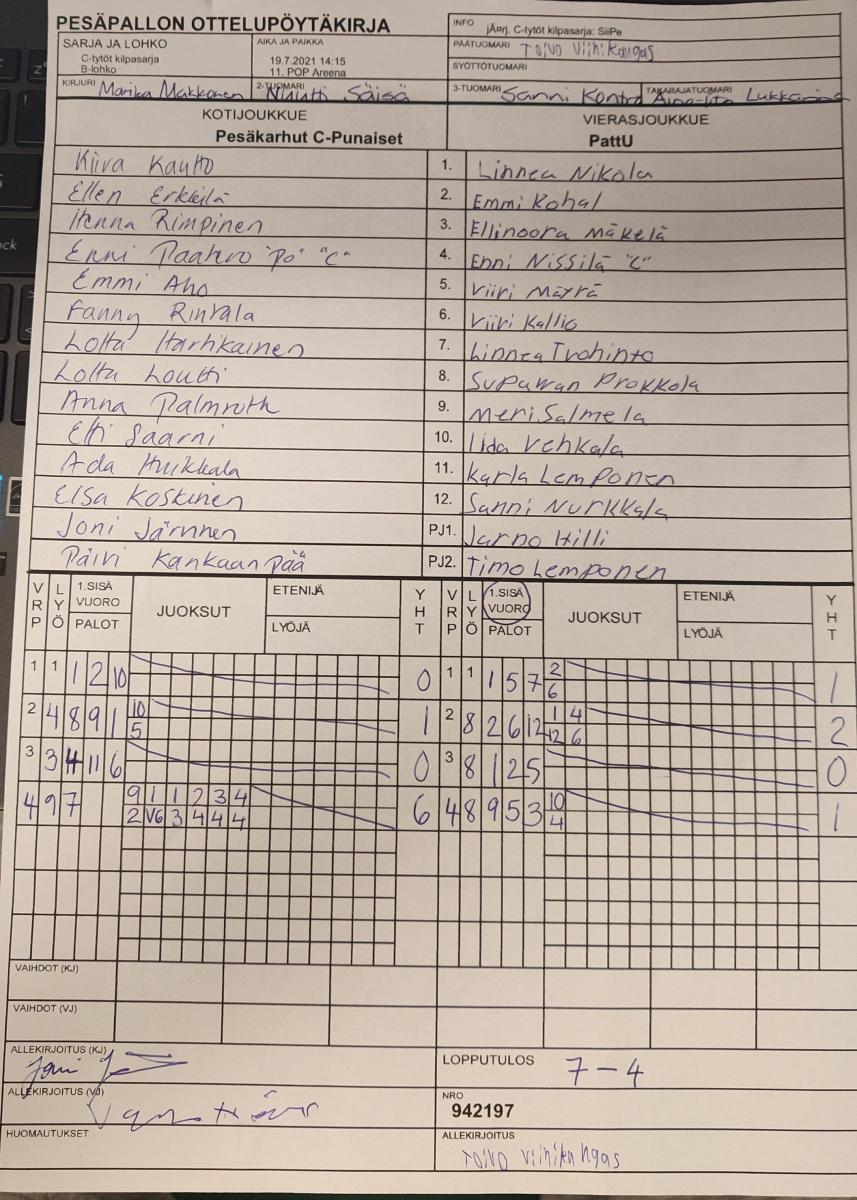 PESÄPALLON OTTELUPÖYTÄKIRJA
INFO jÄrj. C-tytöt kilpasarja: SiiPe
SARJA JA LOHKO
C-tytöt kilpasarja
B-lohko
AIKA JA PAIKKA
19.7.2021 14:15
11. POP Areena
PÄÄTUOMARI Toivo Viinikangas
SYÖTTÖTUOMARI
KIRJURI Marika Makkonen 2-TUOMARI Nuutti Säisä 3-TUOMARI Sanni Kontro TAKARAJATUOMARI Lukkarinen
KOTIJOUKKUE VIERASJOUKKUE
Pesäkarhut C-Punaiset PattU
Kiira Kautto 1. Linnea Nikola
Ellen Erkkilä 2. Emmi Rohal
Henna Rimpinen 3. Ellinoora Mäkelä
Enni Paahvo "PO" "C" 4. Enni Nissilä "C"
Emmi Aho 5. Viiri Mäyrä
Fanny Rintala 6. Viiri Kallio
Lotta Hartikainen 7. Linnea Trohinto
Lotta Loutti 8. Supawan Prokkola
Anna Palmroth 9. Meri Salmela
Elli Saarni 10. Iida Vehkala
Ada Huikkala 11. Karla Lemponen
Elsa Koskinen 12. Sanni Nurkkala
Joni Järvinen PJ1. Jarno Hilli
Päivi Kankaanpää PJ2. Timo Lemponen
VRP LYÖ 1.SISÄ VUORO PALOT JUOKSUT ETENIJÄ LYÖJÄ YHT VRP LYÖ 1.SISÄ VUORO PALOT JUOKSUT ETENIJÄ LYÖJÄ YHT
1 1 1 2 10 0 1 1 1 5 7 2 1
6
2 4 8 9 1 10 1 2 8 2 6 12 1 4 2
5 12 6
3 3 4 11 6 0 3 8 1 2 5 0
4 9 7 9 1 1 2 3 4 6 4 8 9 5 3 10 1
2 V6 3 4 4 4 4
VAIHDOT (KJ)
VAIHDOT (VJ)
ALLEKIRJOITUS (KJ)
Joni
LOPPUTULOS 7-4
ALLEKIRJOITUS (VJ)
NRO
942197
HUOMAUTUKSET
ALLEKIRJOITUS
Toivo Viinikangas